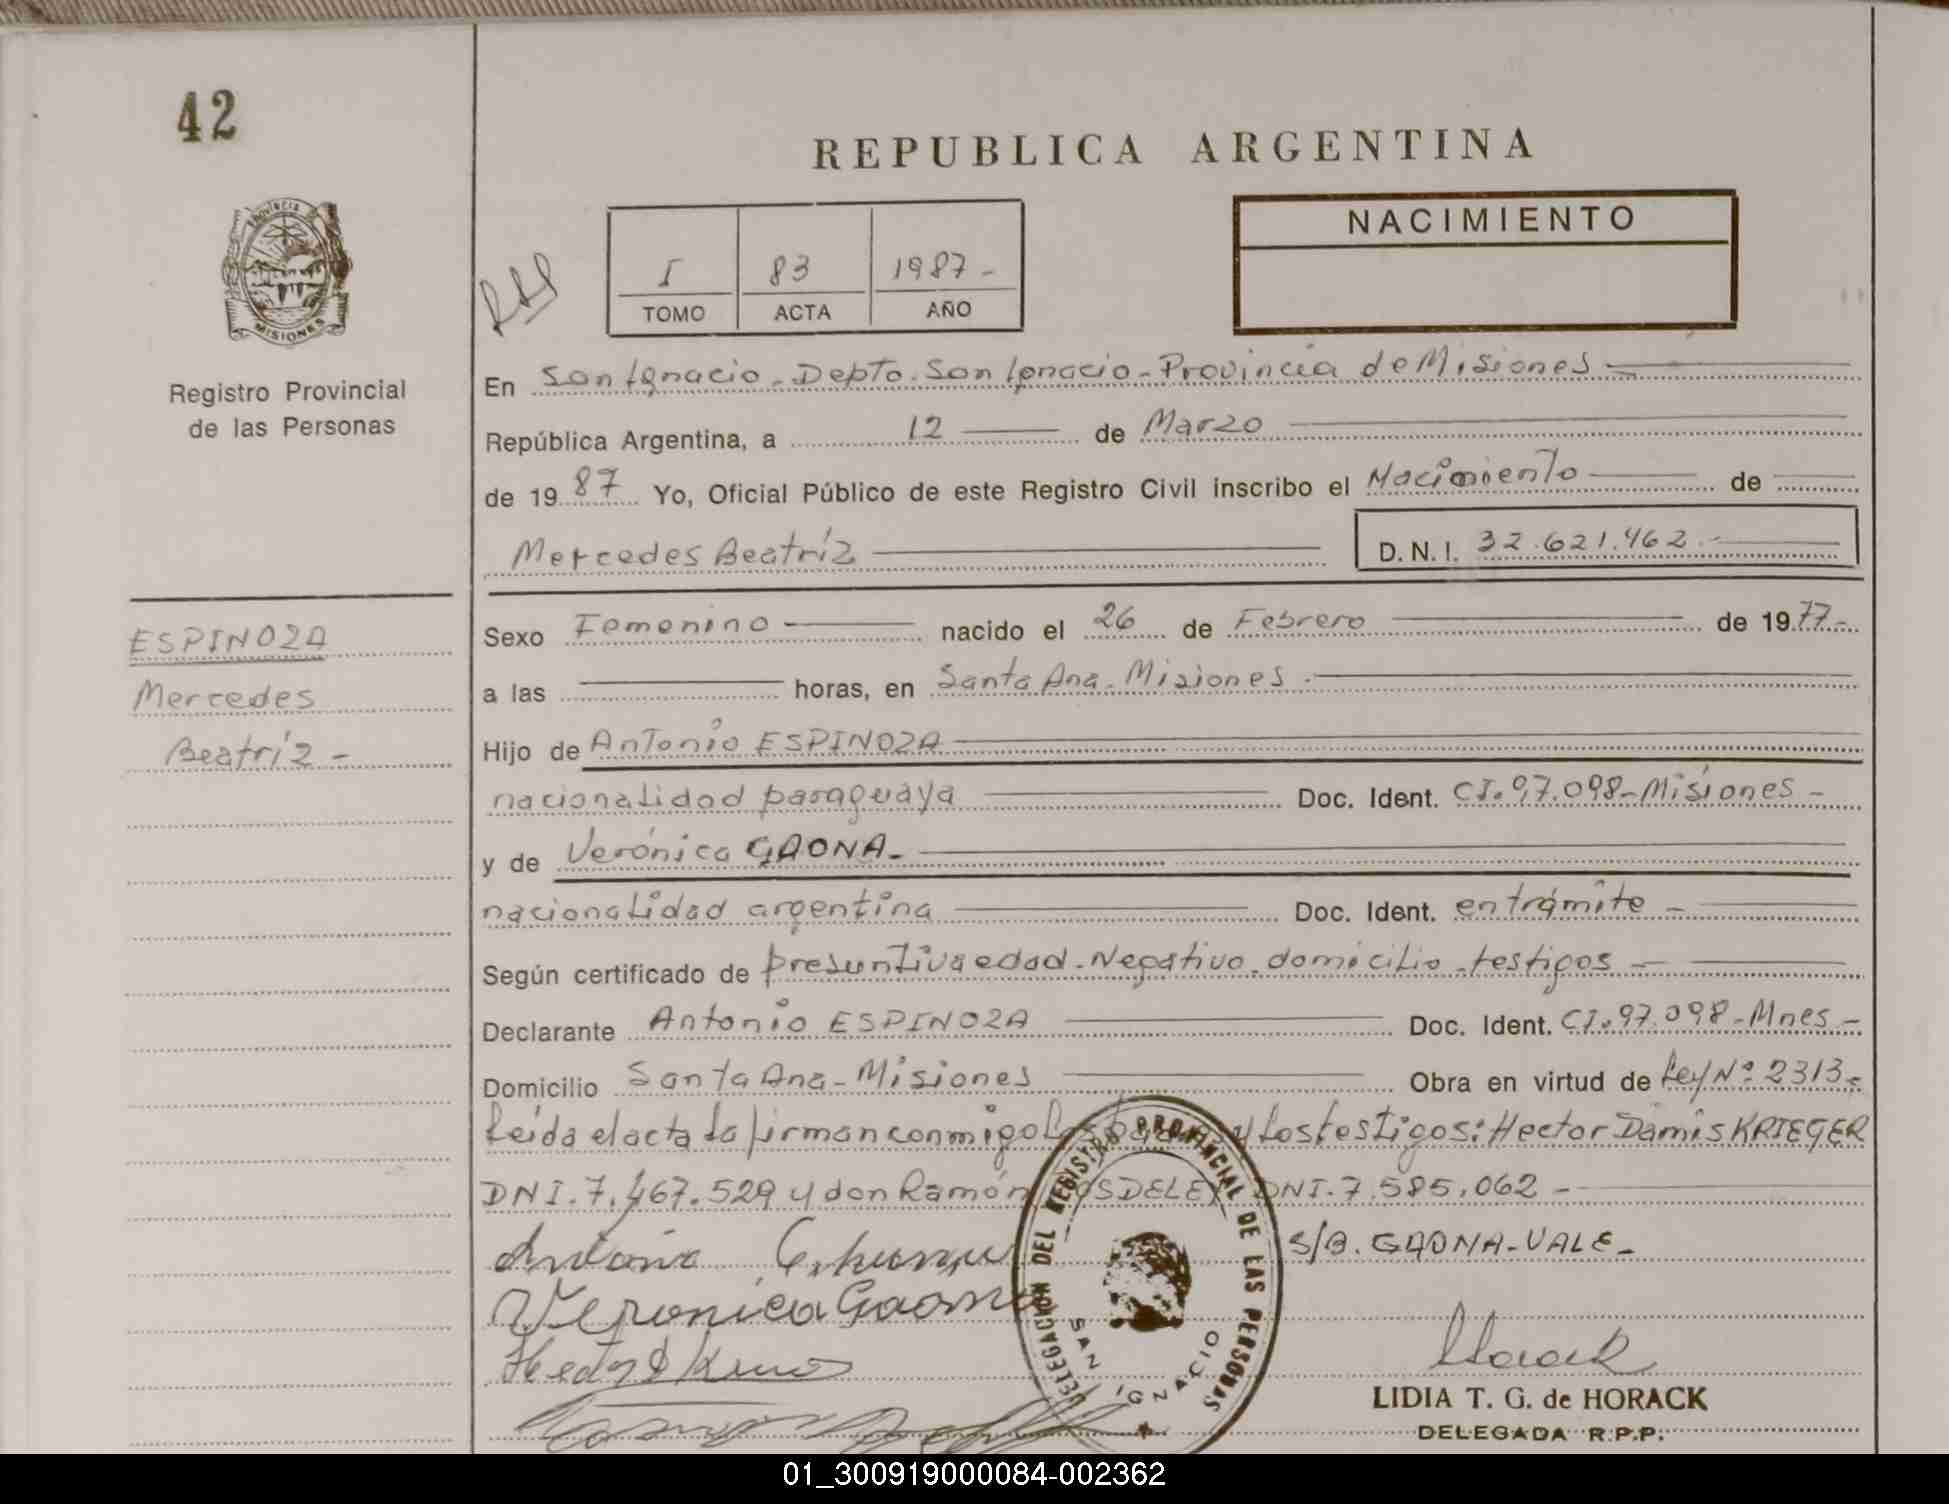 42
REPUBLICA ARGENTINA
PROVINCIA
MISIONES
Registro Provincial
de las Personas
I 83 1987-
TOMO ACTA AÑO
NACIMIENTO
En San Ignacio - Depto. San Ignacio - Provincia de Misiones
República Argentina, a 12 de Marzo
de 1987 Yo, Oficial Público de este Registro Civil inscribo el Nacimiento de
Mercedes Beatríz D.N.I. 32.621.462.-
ESPINOZA
Mercedes
Beatríz -
Sexo Femenino nacido el 26 de Febrero de 1977.-
a las horas, en Santa Ana - Misiones.-
Hijo de Antonio ESPINOZA
nacionalidad paraguaya Doc. Ident. CI. 97.098-Misiones -
y de Verónica GAONA.-
nacionalidad argentina Doc. Ident. en trámite -
Según certificado de presuntiva edad - Negativo - domicilio - testigos -
Declarante Antonio ESPINOZA Doc. Ident. CI. 97.098-Mnes -
Domicilio Santa Ana - Misiones Obra en virtud de Ley Nº 2313.-
Leída el acta la firman conmigo y los testigos: Hector Damis KRIEGER
DNI. 7.467.529 y don Ramón DNI. 7.585.062 -
S/B. GAONA - VALE -
Veronica Gaona
DELEGACION DEL REGISTRO PROVINCIAL DE LAS PERSONAS
SAN IGNACIO
Horack
LIDIA T. G. de HORACK
DELEGADA R.P.P.
01_300919000084-002362